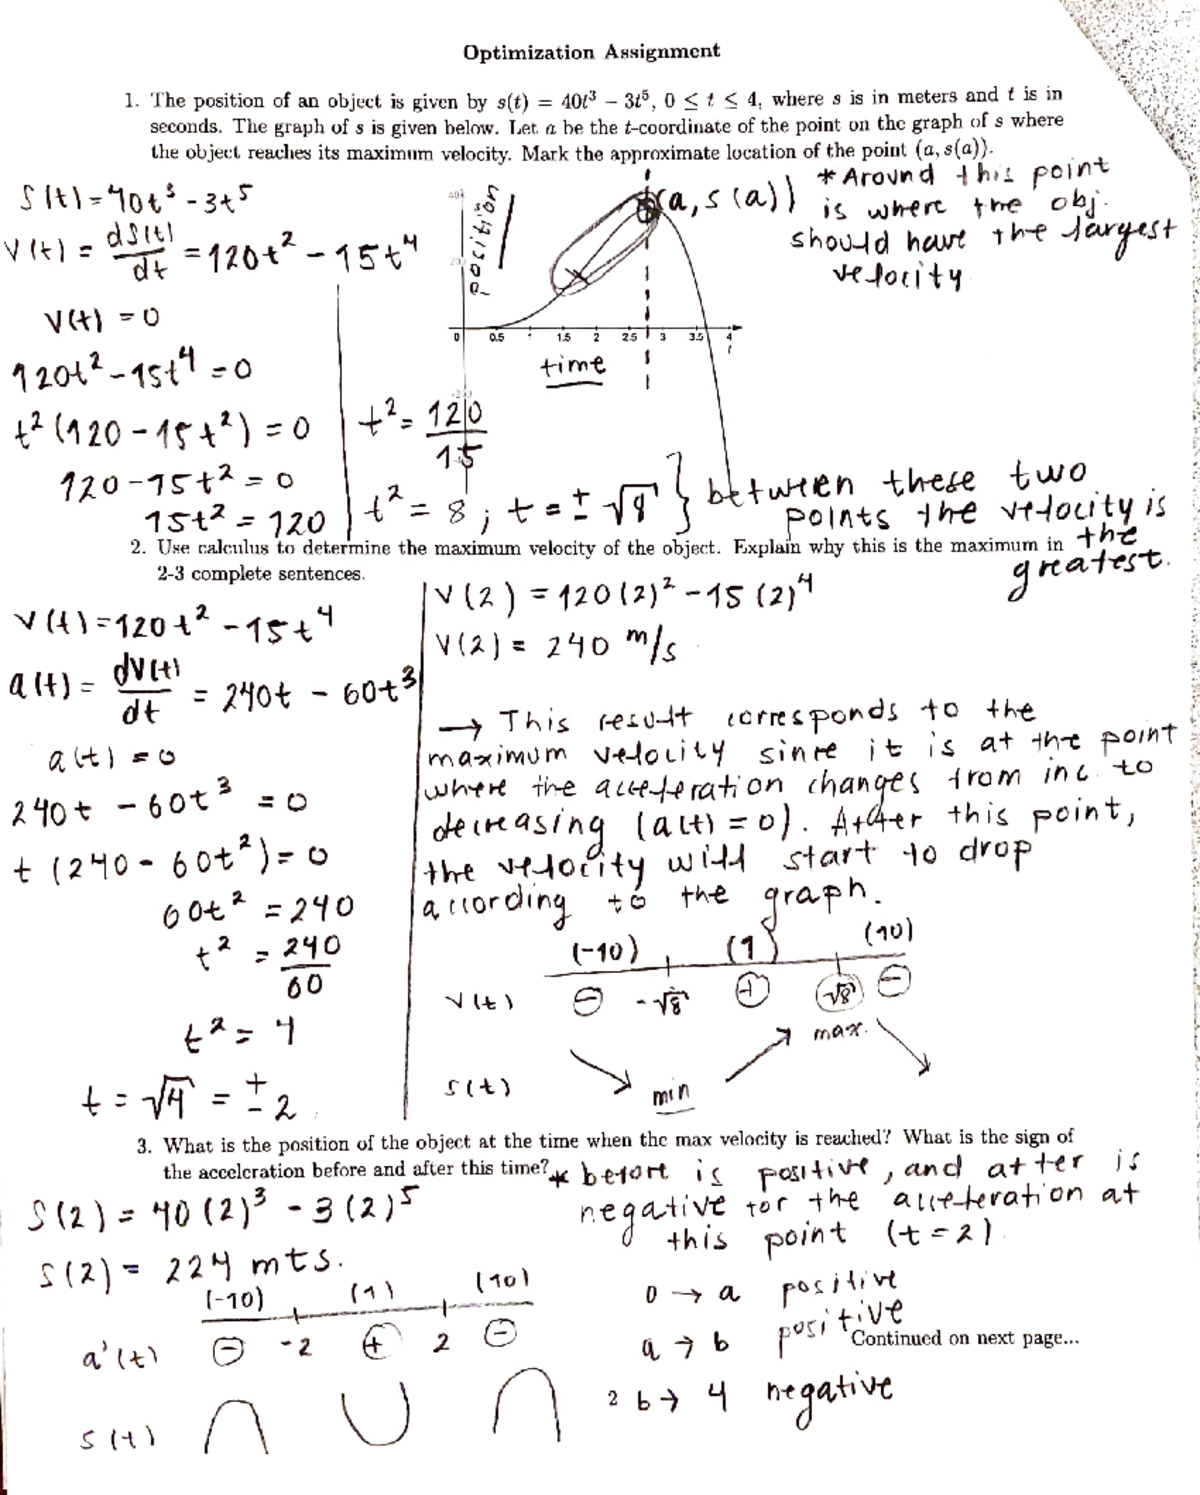 Optimization Assignment
1. The position of an object is given by s(t) = 40t³ − 3t⁵, 0 ≤ t ≤ 4, where s is in meters and t is in
seconds. The graph of s is given below. Let a be the t-coordinate of the point on the graph of s where
the object reaches its maximum velocity. Mark the approximate location of the point (a, s(a)).
S(t) = 40t³ - 3t⁵
V(t) = dS(t)/dt = 120t² - 15t⁴
V(t) = 0
120t² - 15t⁴ = 0
t² (120 - 15t²) = 0
120 - 15t² = 0
15t² = 120
t² = 120/15
t² = 8 ; t = ± √8 } between these two
points the velocity is
the
greatest.
position
(a, s(a))
* Around this point
is where the obj.
should have the largest
velocity
0 0.5 1 1.5 2 2.5 3 3.5 4
t
time
2. Use calculus to determine the maximum velocity of the object. Explain why this is the maximum in
2-3 complete sentences.
V(t) = 120t² - 15t⁴
a(t) = dV(t)/dt = 240t - 60t³
a(t) = 0
240t - 60t³ = 0
t (240 - 60t²) = 0
60t² = 240
t² = 240/60
t² = 4
t = √4 = ± 2
V(2) = 120(2)² - 15(2)⁴
V(2) = 240 m/s
→ This result corresponds to the
maximum velocity since it is at the point
where the acceleration changes from inc. to
decreasing (a(t) = 0). After this point,
the velocity will start to drop
according to the graph.
(-10) (1) (10)
V(t) ⊖ -√8 ⊕ √8 ⊖
max.
S(t) min
3. What is the position of the object at the time when the max velocity is reached? What is the sign of
the acceleration before and after this time?
* before is positive, and after is
negative for the acceleration at
this point (t = 2).
S(2) = 40(2)³ - 3(2)⁵
S(2) = 224 mts.
(-10) (1) (10)
a'(t) ⊖ -2 ⊕ 2 ⊖
S(t)
0 → a positive
a → b positive
2 b → 4 negative
Continued on next page...